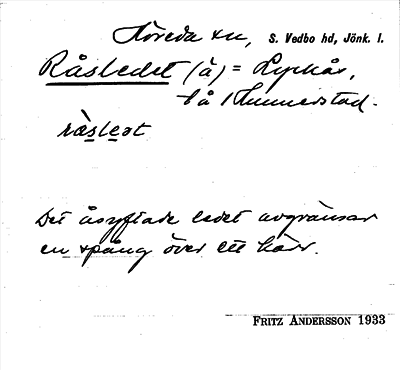 Höreda sn, S. Vedbo hd, Jönk. l.
Råsledet (å) = Lyckås,
få 1 Hunnerstad.
råslest
Det åsyftade ledet avgränsar
en spång över ett kärr.
FRITZ ANDERSSON 1933